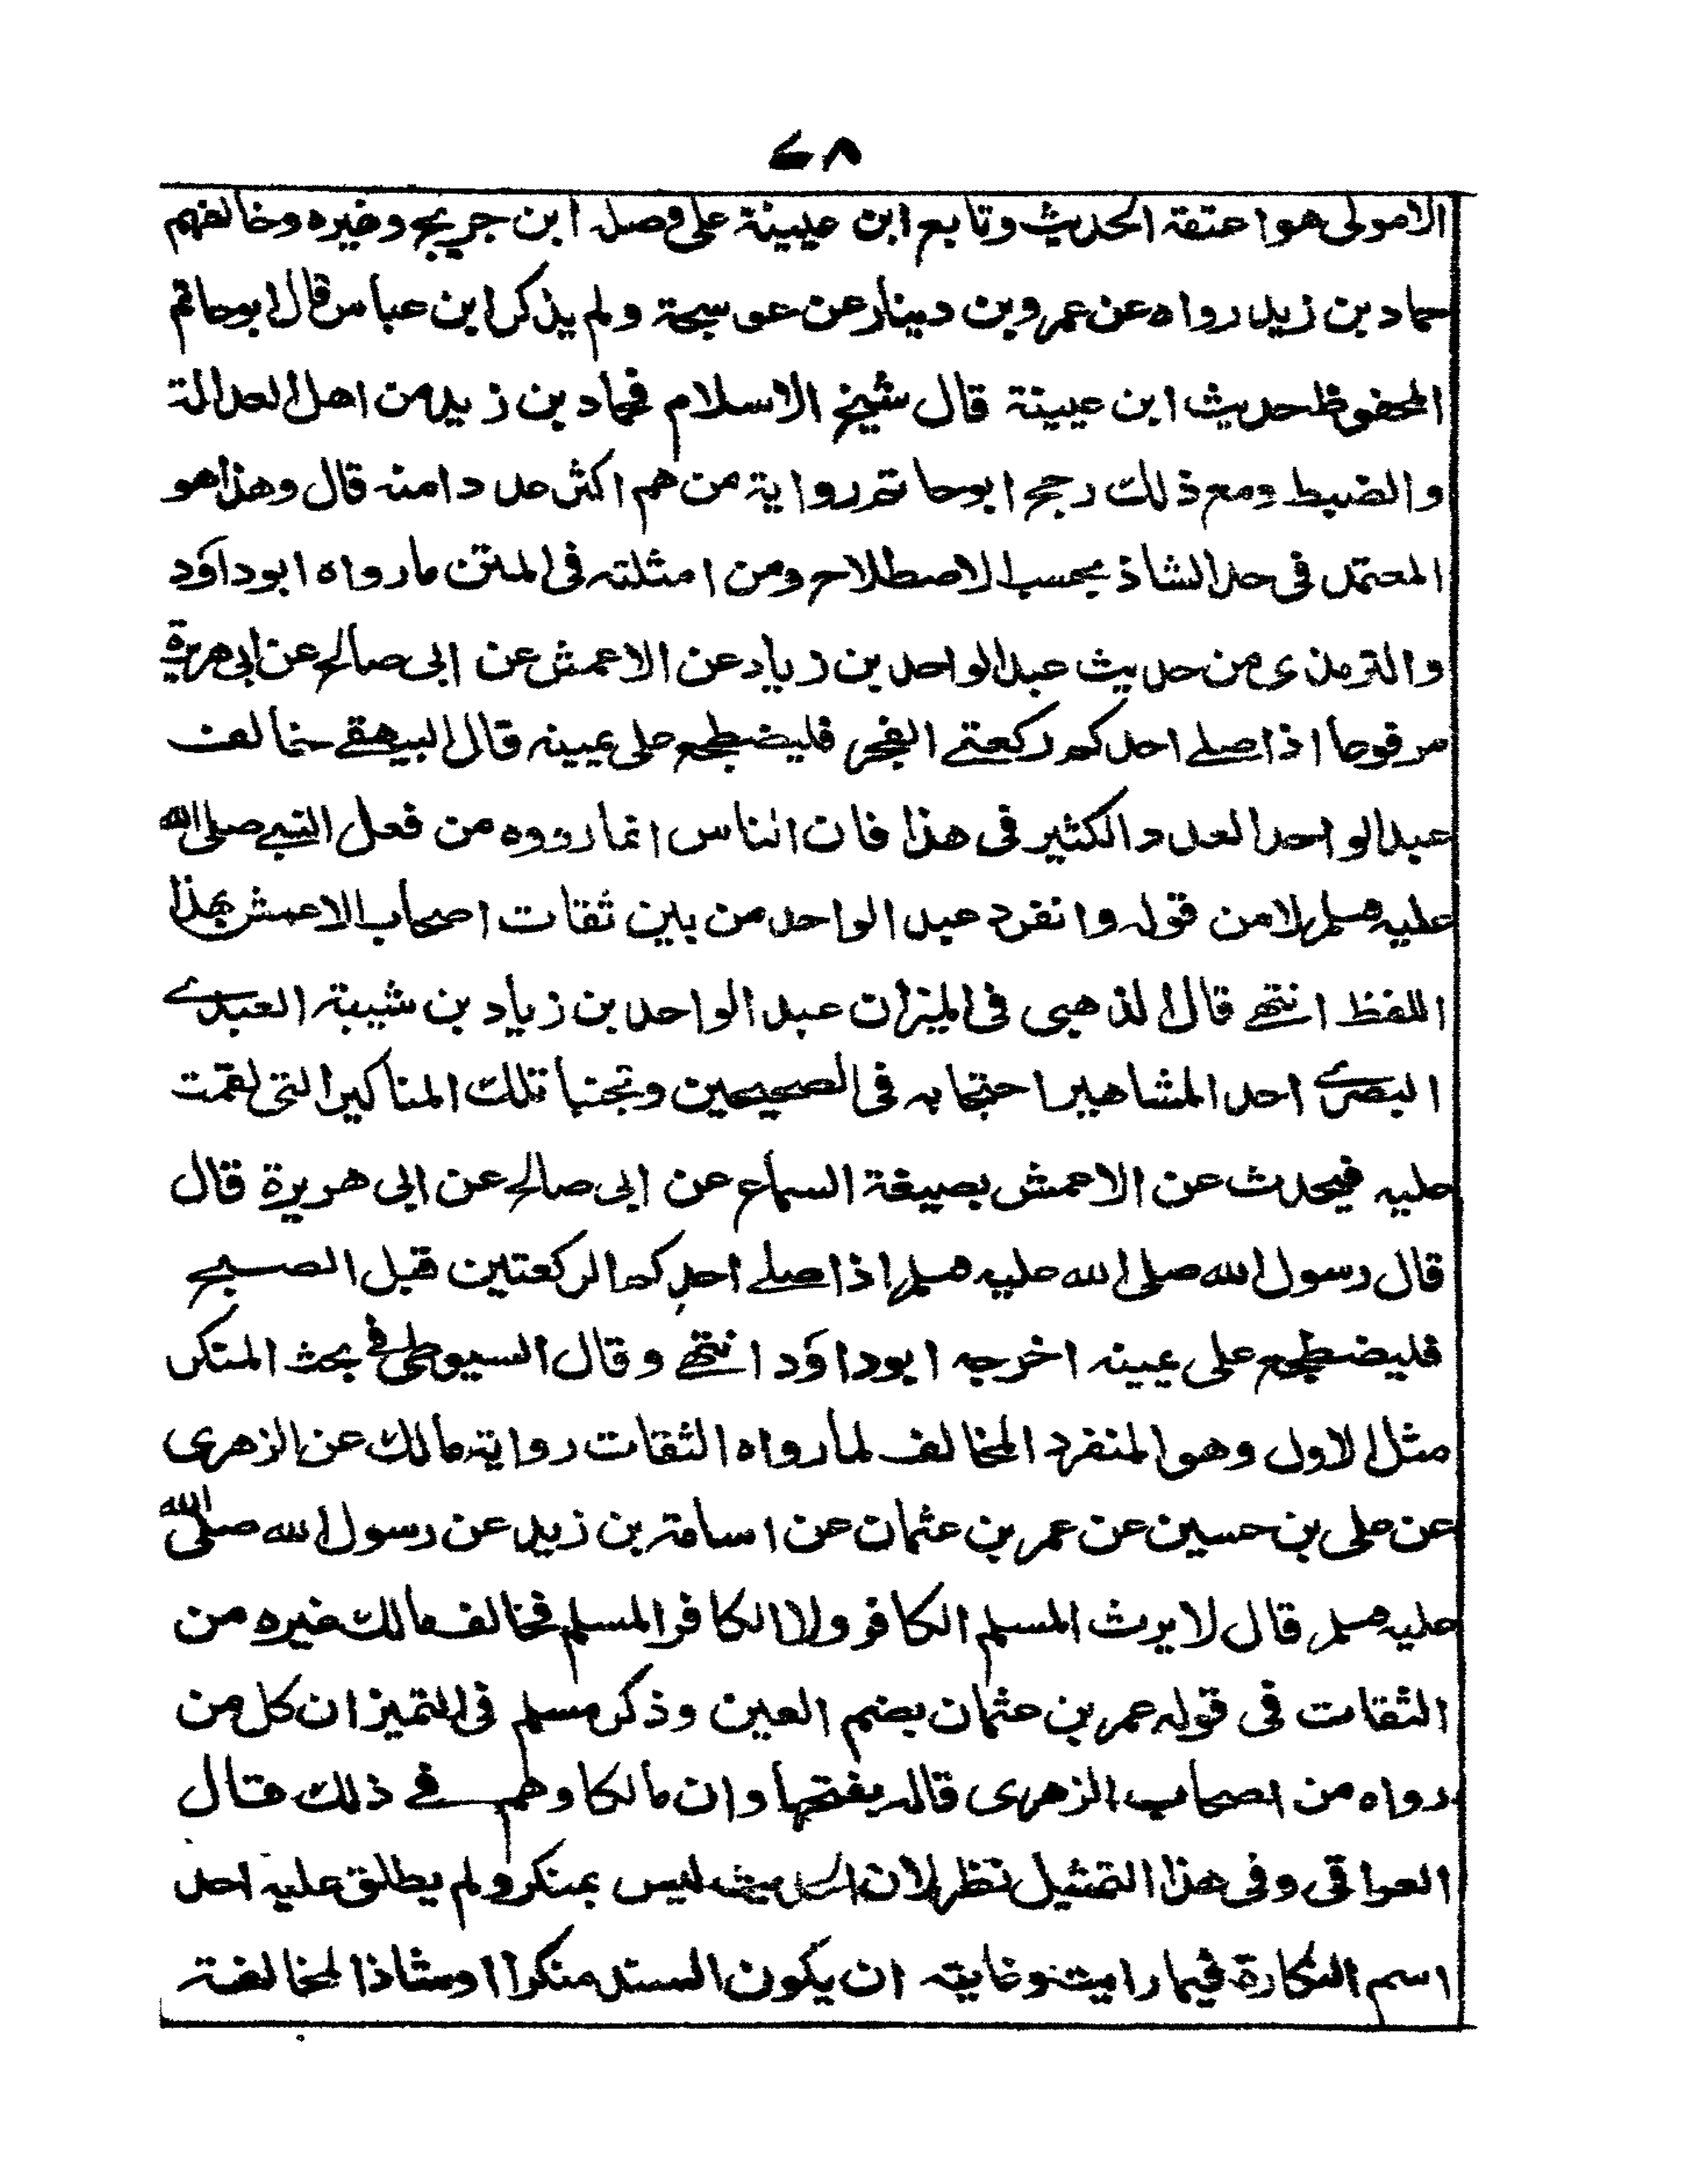 ٦٨
الامولى هو اعتقه الحديث وتابع ابن عيينة على وصله ابن جريج وغيره وخالفهم
حماد بن زيد رواه عن عمرو بن دينار عن عوسجة ولم يذكر ابن عباس قال ابو حاتم
المحفوظ حديث ابن عيينة قال شيخ الاسلام فحماد بن زيد من اهل العدالة
والضبط ومع ذلك رجح ابو حاتم رواية من هم اكثر عددا منه قال وهذا هو
المعتمد فى حد الشاذ بحسب الاصطلاح ومن امثلته فى المتن ما رواه ابو داؤد
والترمذى من حديث عبد الواحد بن زياد عن الاعمش عن ابى صالح عن ابى هريرة
مرفوعا اذا صلے احدكم ركعتے الفجر فليضطجع على يمينه قال البيهقے خالف
عبد الواحد العدد الكثير فى هذا فان الناس انما رووه من فعل النبے صلى الله
عليه وسلم لا من قوله وانفرد عبد الواحد من بين ثقات اصحاب الاعمش بهذا
اللفظ انتهے قال الذهبى فى الميزان عبد الواحد بن زياد بن شيبة العبدے
البصرے احد المشاهير احتجا به فى الصحيحين وتجنبا تلك المناكير التى نقمت
عليه فيحدث عن الاعمش بصيغة السماع عن ابى صالح عن ابى هريرة قال
قال رسول الله صلى الله عليه وسلم اذا صلے احدكم الركعتين قبل الصبح
فليضطجع على يمينه اخرجه ابو داؤد انتهے وقال السيوطى فى بحث المنكر
مثل الاول وهو المنفرد المخالف لما رواه الثقات رواية مالك عن الزهرى
عن على بن حسين عن عمر بن عثمان عن اسامة بن زيد عن رسول الله صلى الله
عليه وسلم قال لا يرث المسلم الكافر ولا الكافر المسلم فخالف مالك غيره من
الثقات فى قوله عمر بن عثمان بضم العين وذكر مسلم فى التميز ان كل من
رواه من اصحاب الزهرى قاله بفتحها وان مالكا وهم فے ذلك قال
العراقى وفى هذا التمثيل نظر لان الحديث ليس بمنكر ولم يطلق عليه احد
اسم النكارة فيما رايت وغايته ان يكون السند منكرا او شاذا لمخالفة